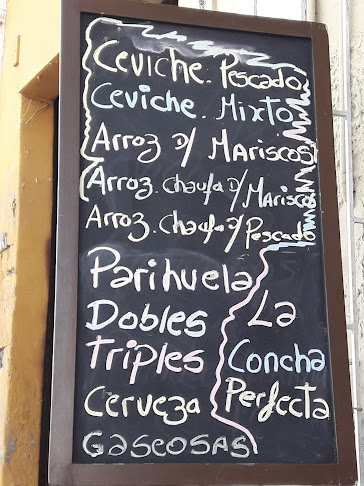 Ceviche. Pescado
Ceviche. Mixto
Arroz D/ Mariscos
Arroz. Chaufa D/ Mariscos
Arroz. Chaufa D/ Pescado
Parihuela
Dobles
Triples
Cerveza
Gaseosas
La
Concha
Perfecta